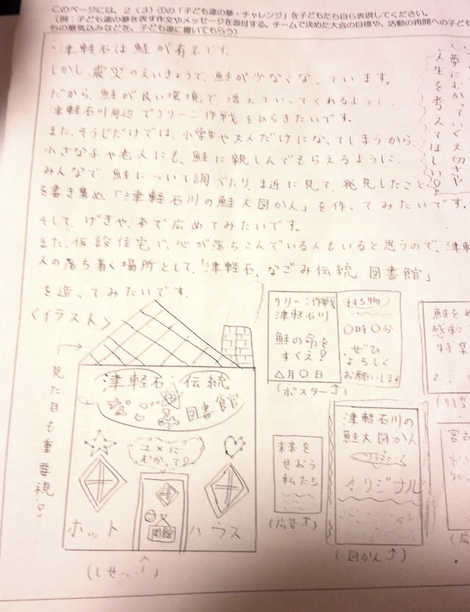 このページには、2(3)①の「子ども達の夢・チャレンジ」を子どもたち自ら表現してください。
(例：子ども達の夢を表す作文やメッセージを添付する。チームで決めた大会の目標や、活動の再開への子ど
ちの意気込みなどを、子ども達に書いてもらう)
津軽石は鮭が有名です。
しかし震災のえいきょうで、鮭が少なくなっています。
だから、鮭が良い環境で増えていってくれるように、
津軽石川周辺でクリーン作戦をひらきたいです。
また、そうじだけでは、小学生や大人だけになってしまうから、
小さな子や老人にも、鮭に親しんでもらえるように、
みんなで、鮭について調べたり、ま近に見て、発見したこと
を書き集め、「津軽石川の鮭大図かん」を作ってみたいです。
そして、げきや、本で広めてみたいです。
また、仮設住宅で、心が落ちこんでいる人もいると思うので、津軽
人の落ち着く場所として、「津軽石、なごみ伝統 図書館」
を造ってみたいです。
夢にむかっていく大切さや
人生を考えてほしい!
<イラスト>
見た目も重要視!
津軽石 伝統
図書館
ユメに
むかって!
開館
ホット ハウス
クリーン作戦
津軽石川
鮭の命を
すくえ!
△月〇日
(持ち物)
〇時〇分
ぜひ
よろしく
お願いします
(ポスター↑)
未来を
せおう
私たち
(広告↑)
津軽石川の
鮭大図かん
オリジナル
(図かん↑)
鮭をめ
感動
特集
宮古